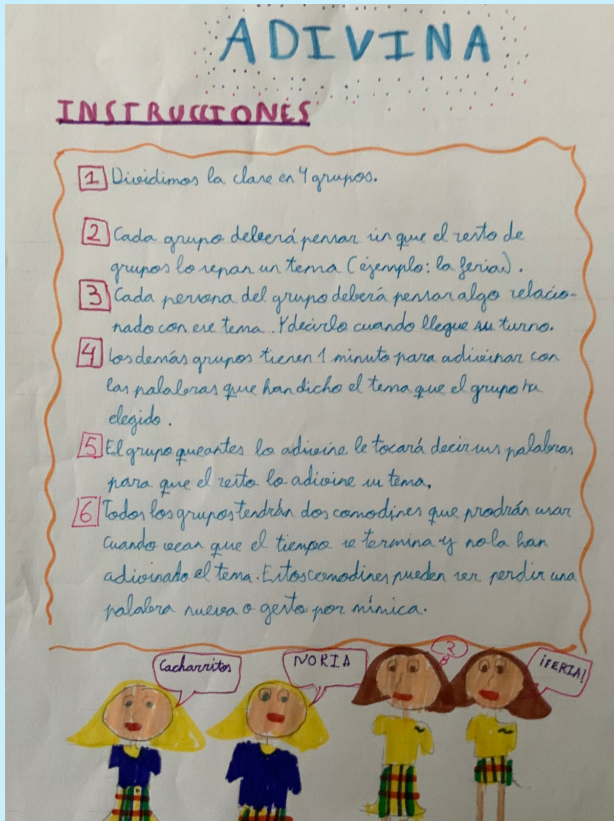 ADIVINA
INSTRUCCIONES
1 Dividimos la clase en 4 grupos.
2 Cada grupo deberá pensar sin que el resto de
grupos lo sepan un tema (ejemplo: la feria).
3 Cada persona del grupo deberá pensar algo relacio-
nado con ese tema. Y decirlo cuando llegue su turno.
4 Los demás grupos tienen 1 minuto para adivinar con
las palabras que han dicho el tema que el grupo ha
elegido.
5 El grupo que antes lo adivine le tocará decir sus palabras
para que el resto lo adivine su tema.
6 Todos los grupos tendrán dos comodines que prodrán usar
cuando vean que el tiempo se termina y no la han
adivinado el tema. Estos comodines pueden ser perdir una
palabra nueva o gesto por mímica.
Cacharritos
NORIA
?
¡FERIA!